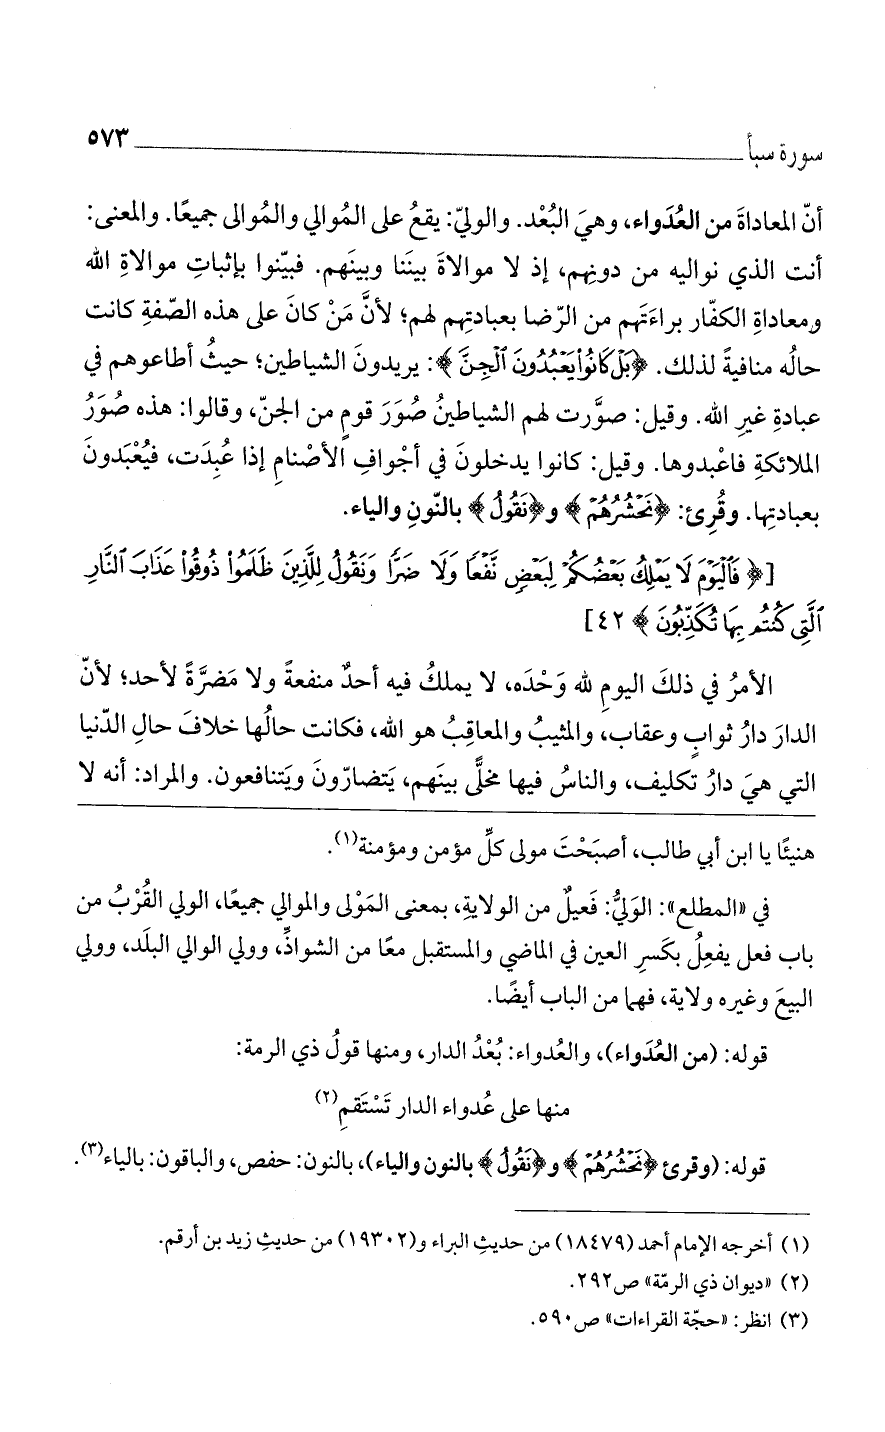 سورة سبأ ٥٧٣
أنّ المعاداةَ من العُدَواء، وهيَ البُعْد. والوليّ: يقعُ على المُوالي والمُوالى جميعًا. والمعنى:
أنت الذي نواليه من دونِهم، إذ لا موالاةَ بينَنا وبينَهم. فبيّنوا بإثباتِ موالاةِ الله
ومعاداةِ الكفّار براءَتَهم من الرّضا بعبادتِهم لهم؛ لأنَّ مَنْ كانَ على هذه الصّفةِ كانت
حالُه منافيةً لذلك. ﴿بَلْ كَانُوا۟ يَعْبُدُونَ ٱلْجِنَّ﴾: يريدونَ الشياطين؛ حيثُ أطاعوهم في
عبادةِ غيرِ الله. وقيل: صوَّرت لهم الشياطينُ صُوَرَ قومٍ من الجنّ، وقالوا: هذه صُوَرُ
الملائكةِ فاعْبدوها. وقيل: كانوا يدخلونَ في أجْوافِ الأصْنامِ إذا عُبِدَت، فيُعْبَدونَ
بعبادتِها. وقُرِئ: ﴿نَحْشُرُهُمْ﴾ و﴿نَقُولُ﴾ بالنّونِ والياء.
[﴿فَٱلْيَوْمَ لَا يَمْلِكُ بَعْضُكُمْ لِبَعْضٍ نَّفْعًا وَلَا ضَرًّا وَنَقُولُ لِلَّذِينَ ظَلَمُوا۟ ذُوقُوا۟ عَذَابَ ٱلنَّارِ
ٱلَّتِى كُنتُم بِهَا تُكَذِّبُونَ﴾ ٤٢]
الأمرُ في ذلكَ اليومِ لله وَحْدَه، لا يملكُ فيه أحدٌ منفعةً ولا مَضرَّةً لأحد؛ لأنّ
الدارَ دارُ ثوابٍ وعقاب، والمثيبُ والمعاقِبُ هو الله، فكانت حالُها خلافَ حالِ الدّنيا
التي هيَ دارُ تكليف، والناسُ فيها مخلًّى بينَهم، يَتضارّونَ ويَتنافعون. والمراد: أنه لا
هنيئًا يا ابن أبي طالب، أصبَحْتَ مولى كلِّ مؤمن ومؤمنة(١).
في «المطلع»: الوَليُّ: فَعيلٌ من الولايةِ، بمعنى المَوْلى والموالي جميعًا، الولي القُرْبُ من
باب فعل يفعِلُ بكَسرِ العين في الماضي والمستقبل معًا من الشواذِّ، وولي الوالي البلَد، وولي
البيعَ وغيره ولاية، فهما من الباب أيضًا.
قوله: (من العُدَواء)، والعُدواء: بُعْدُ الدار، ومنها قولُ ذي الرمة:
منها على عُدواء الدار تَسْتَقمِ(٢)
قوله: (وقرئ ﴿نَحْشُرُهُمْ﴾ و﴿نَقُولُ﴾ بالنون والياء)، بالنون: حفص، والباقون: بالياء(٣).
(١) أخرجه الإمام أحمد (١٨٤٧٩) من حديثِ البراء و(١٩٣٠٢) من حديثِ زيد بن أرقم.
(٢) «ديوان ذي الرمّة» ص٢٩٢.
(٣) انظر: «حجّة القراءات» ص٥٩٠.